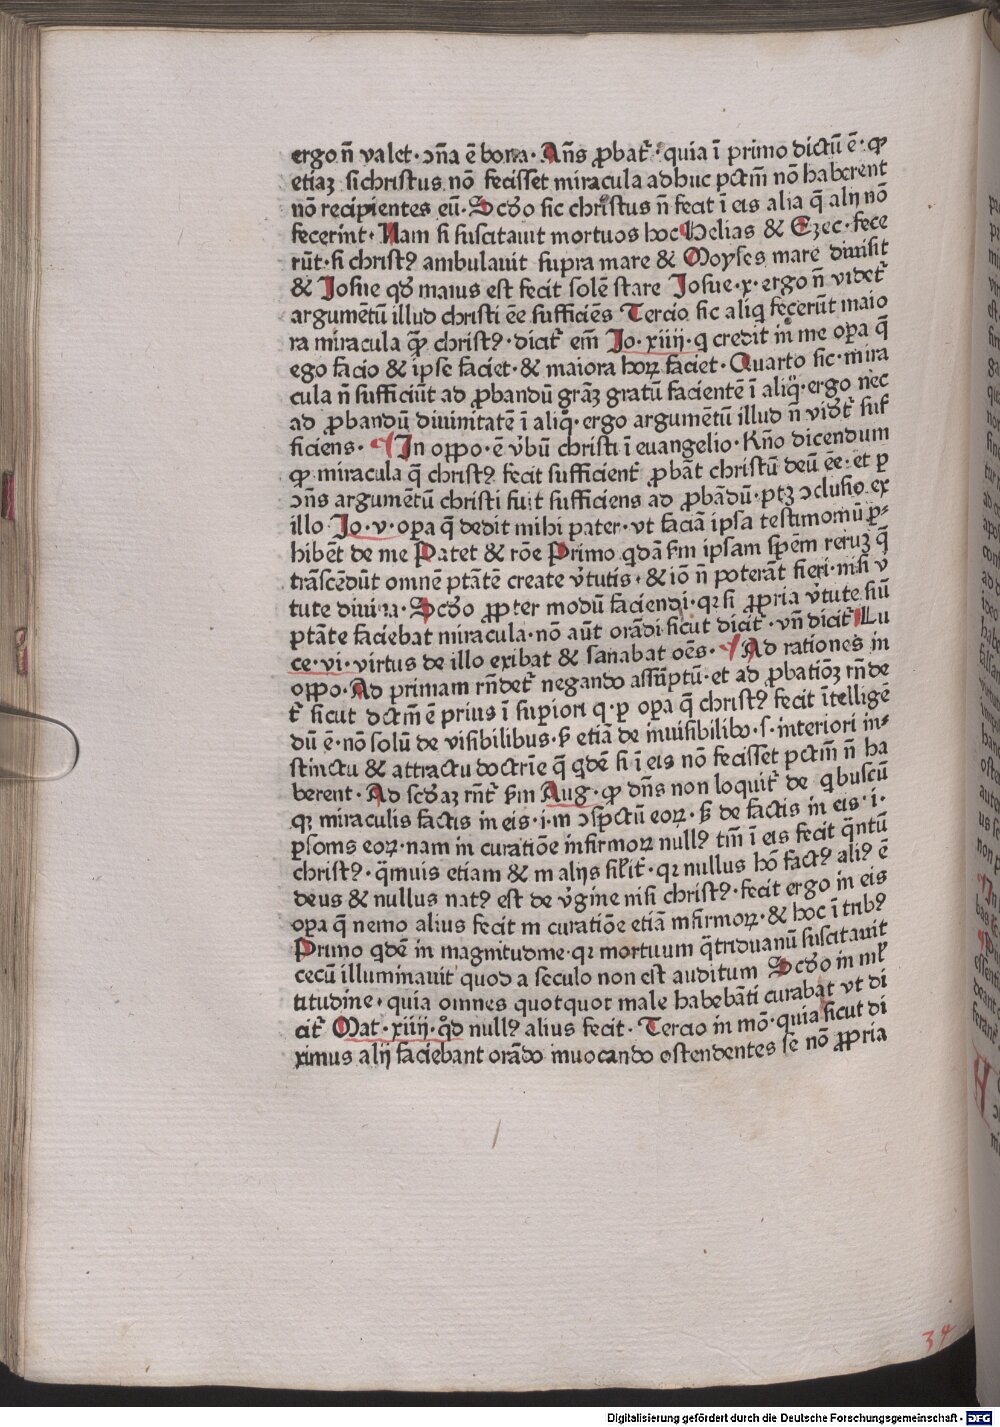 ergo n̄ valet·ↄn̄a ē bona·An̄s ꝓbat᷑·quia ī primo dictū ē·ꝙ
etiaꝫ si christus nō fecisset miracula adhuc pctm̄ nō haberent
nō recipientes eū·Scd̄o sic christus n̄ fecit ī eis alia q̄ alij nō
fecerint·Nam si suscitauit mortuos hoc Helias & Ezec·fece
rūt·si christꝰ ambulauit supra mare & Moyses mare diuisit
& Josue qd̄ maius est fecit solē stare Josue·x·ergo n̄ videt᷑
argumētū illud christi ēe sufficiēs Tercio sic aliq̇ fecerūt maio
ra miracula qꝫ̄ christꝰ·dicit᷑ em̄ Jo·xiiij·q̇ credit in me oꝑa q̄
ego facio & ipse faciet·& maiora hoꝝ faciet·Quarto sic·mira
cula n̄ sufficiūt ad ꝓbandū grāꝫ gratū facientē ī aliq̊·ergo nec
ad ꝓbandū diuinitatē ī aliq̊·ergo argumētū illud n̄ videt᷑ suf
ficiens·¶In oppo·ē v̓bū christi ī euangelio·Rn̄o dicendum
ꝙ miracula q̄ christꝰ fecit sufficient᷑ ꝓbāt christū deū ēe·et ꝑ
ↄn̄s argumētū christi fuit sufficiens ad ꝓbādū·ptꝫ ↄclusio ex
illo Jo·v·oꝑa q̄ dedit mihi pater·vt faciā ipsa testimoniū ꝑ-
hibēt de me Patet & rōe Primo qdā s̄m ipsam spēm reruꝫ q̄
trāscēdūt omnē ptātē create v̓tutis·& iō n̄ poterāt fieri·nisi v̓
tute diuina·Scd̄o ꝓpter modū faciendi·qꝛ si ꝓpria v̓tute siū
ptāte faciebat miracula·nō aūt orādi sicut dicit᷑·vn̄ dicit᷑ Lu
ce·vi·virtus de illo exibat & sanabat oēs·¶Ad rationes in
oppo·Ad primam rn̄det᷑ negando assūptū·et ad ꝓbatiōꝫ rn̄de
t᷑ sicut dctm̄ ē prius ī suꝑiori q·ꝑ oꝑa q̄ christꝰ fecit ītelligē
dū ē·nō solū de visibilibus·sꝫ etiā de inuisibilibꝰ·s·interiori in-
stinctu & attractu doctrīe q̄ qdē si ī eis nō fecisset pctm̄ n̄ ha
berent·Ad scd̄aꝫ rn̄t᷑ s̄m Aug·ꝙ dn̄s non loquit᷑ de q̇buscū
qꝫ miraculis factis in eis·i·in ↄspectū eoꝝ·sꝫ de factis in eis·i·
ꝑsonis eoꝝ·nam in curatiōe infirmoꝝ nullꝰ tm̄ ī eis fecit q̄ntū
christꝰ·q̄muis etiam & in alijs silit᷑·qꝛ nullus hō factꝰ aliꝰ ē
deus & nullus natꝰ est de v̓gine nisi christꝰ·fecit ergo in eis
oꝑa q̄ nemo alius fecit in curatiōe etiā infirmoꝝ·& hoc ī tribꝰ
Primo qdē in magnitudine·qꝛ mortuum q̄triduanū suscitauit
cecū illuminauit quod a seculo non est auditum Scd̄o in ml̓
titudine·quia omnes quotquot male habebāti curabat vt di
cit᷑ Mat·xiiij·qd̄ nullꝰ alius fecit·Tercio in mō·quia sicut di
ximus alij faciebant orādo inuocando ostendentes se nō ꝓpria
34
Digitalisierung gefördert durch die Deutsche Forschungsgemeinschaft - DFG